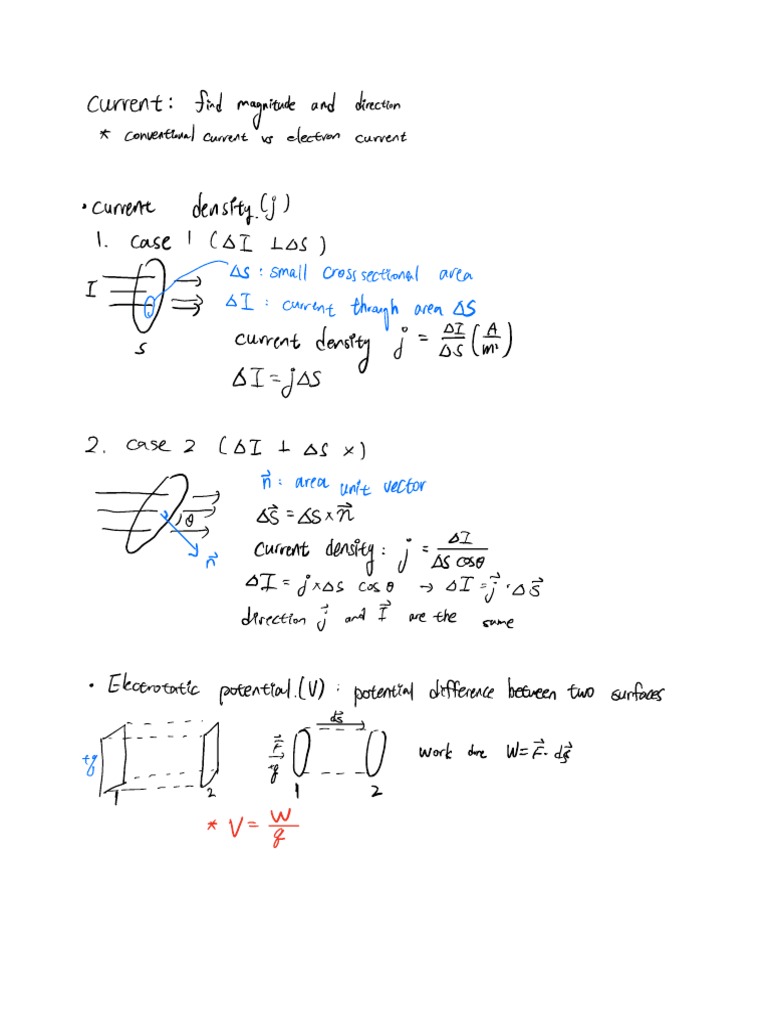 Current: find magnitude and direction
* conventional current vs electron current
• current density.(j)
1. case 1 (ΔI ⊥ ΔS)
I
S
ΔS: small cross sectional area
ΔI: current through area ΔS
current density j = ΔI/ΔS (A/m²)
ΔI = jΔS
2. case 2 (ΔI ⊥ ΔS ×)
θ
n⃗
n⃗: area unit vector
ΔS⃗ = ΔS × n⃗
current density: j = ΔI/ΔS cosθ
ΔI = j × ΔS cos θ → ΔI = j⃗ · ΔS⃗
direction j⃗ and I⃗ are the same
• Electrotatic potential.(V): potential difference between two surfaces
+q
1
2
F⃗
+q
ds⃗
1
2
work done W = F⃗ · ds⃗
* V = W/q